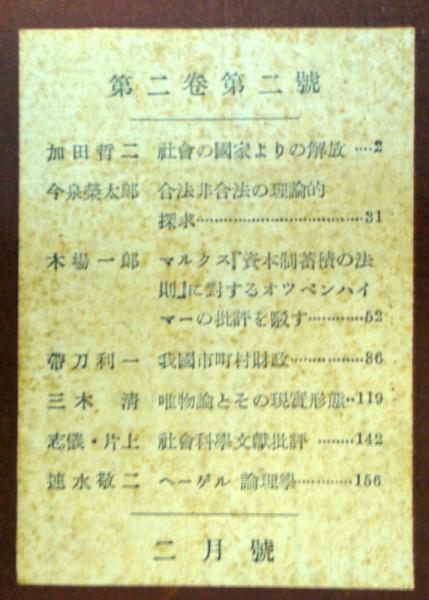 第二卷第二號
加田哲二 社會の國家よりの解放 ····2
今泉榮太郎 合法非合法の理論的
探求··································31
木場一郎 マルクス『資本制蓄積の法
則』に對するオツペンハイ
マーの批評を駁す············52
帶刀利一 我國市町村財政···············86
三木 清 唯物論とその現實形態··119
志・片上 社會科學文獻批評 ········142
速水敬二 ヘーゲル 論理學············156
二月號